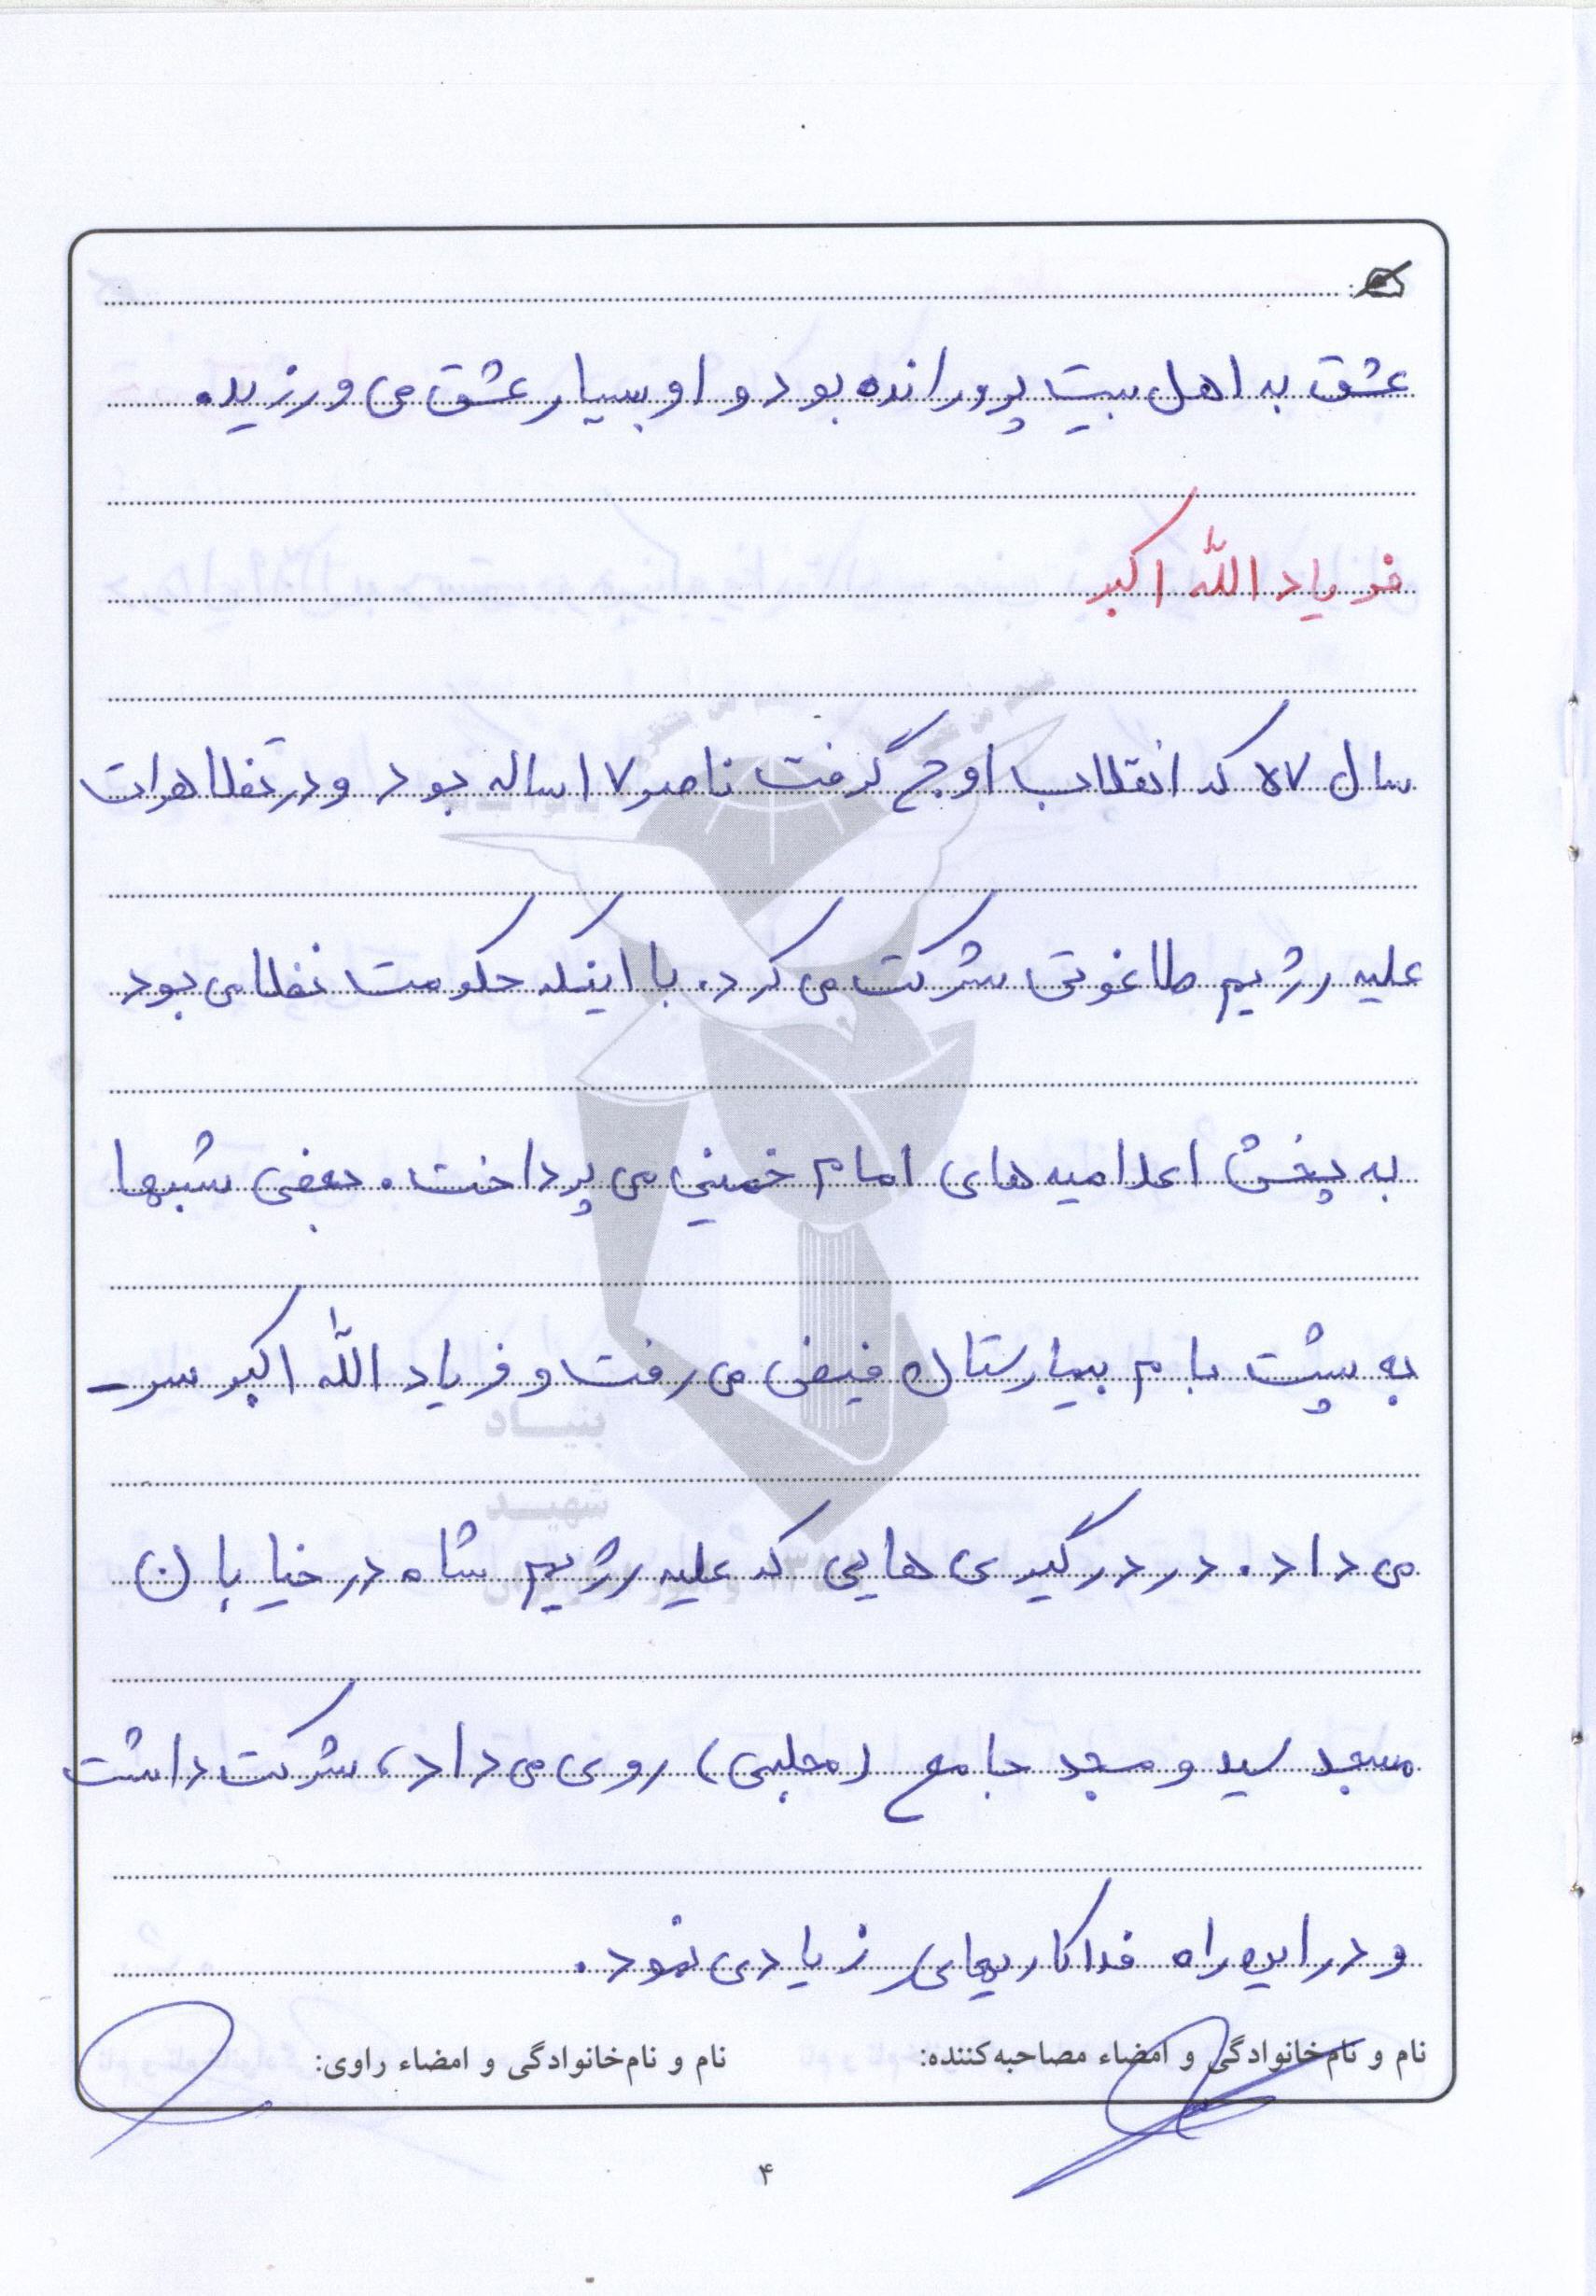 عشق به اهل بیت پرورانده بود و او بسیار عشق می ورزید.
فریاد الله اکبر
سال ۵۷ که انقلاب اوج گرفت ناصر ۱۷ ساله بود و در تظاهرات
علیه رژیم طاغوتی شرکت می کرد. با اینکه حکومت نظامی بود
به پخش اعلامیه های امام خمینی می پرداخت. بعضی شبها
به پشت بام بیمارستان فیض می رفت و فریاد الله اکبر سر-
می داد. در درگیری هایی که علیه رژیم شاه در خیابان
مسجد سید و مسجد جامع (مجلسی) روی می داد، شرکت داشت
و در این راه فداکاریهای زیادی نمود.
نام و نام‌خانوادگی و امضاء مصاحبه‌کننده: نام و نام‌خانوادگی و امضاء راوی:
۴
بنیاد
شهید